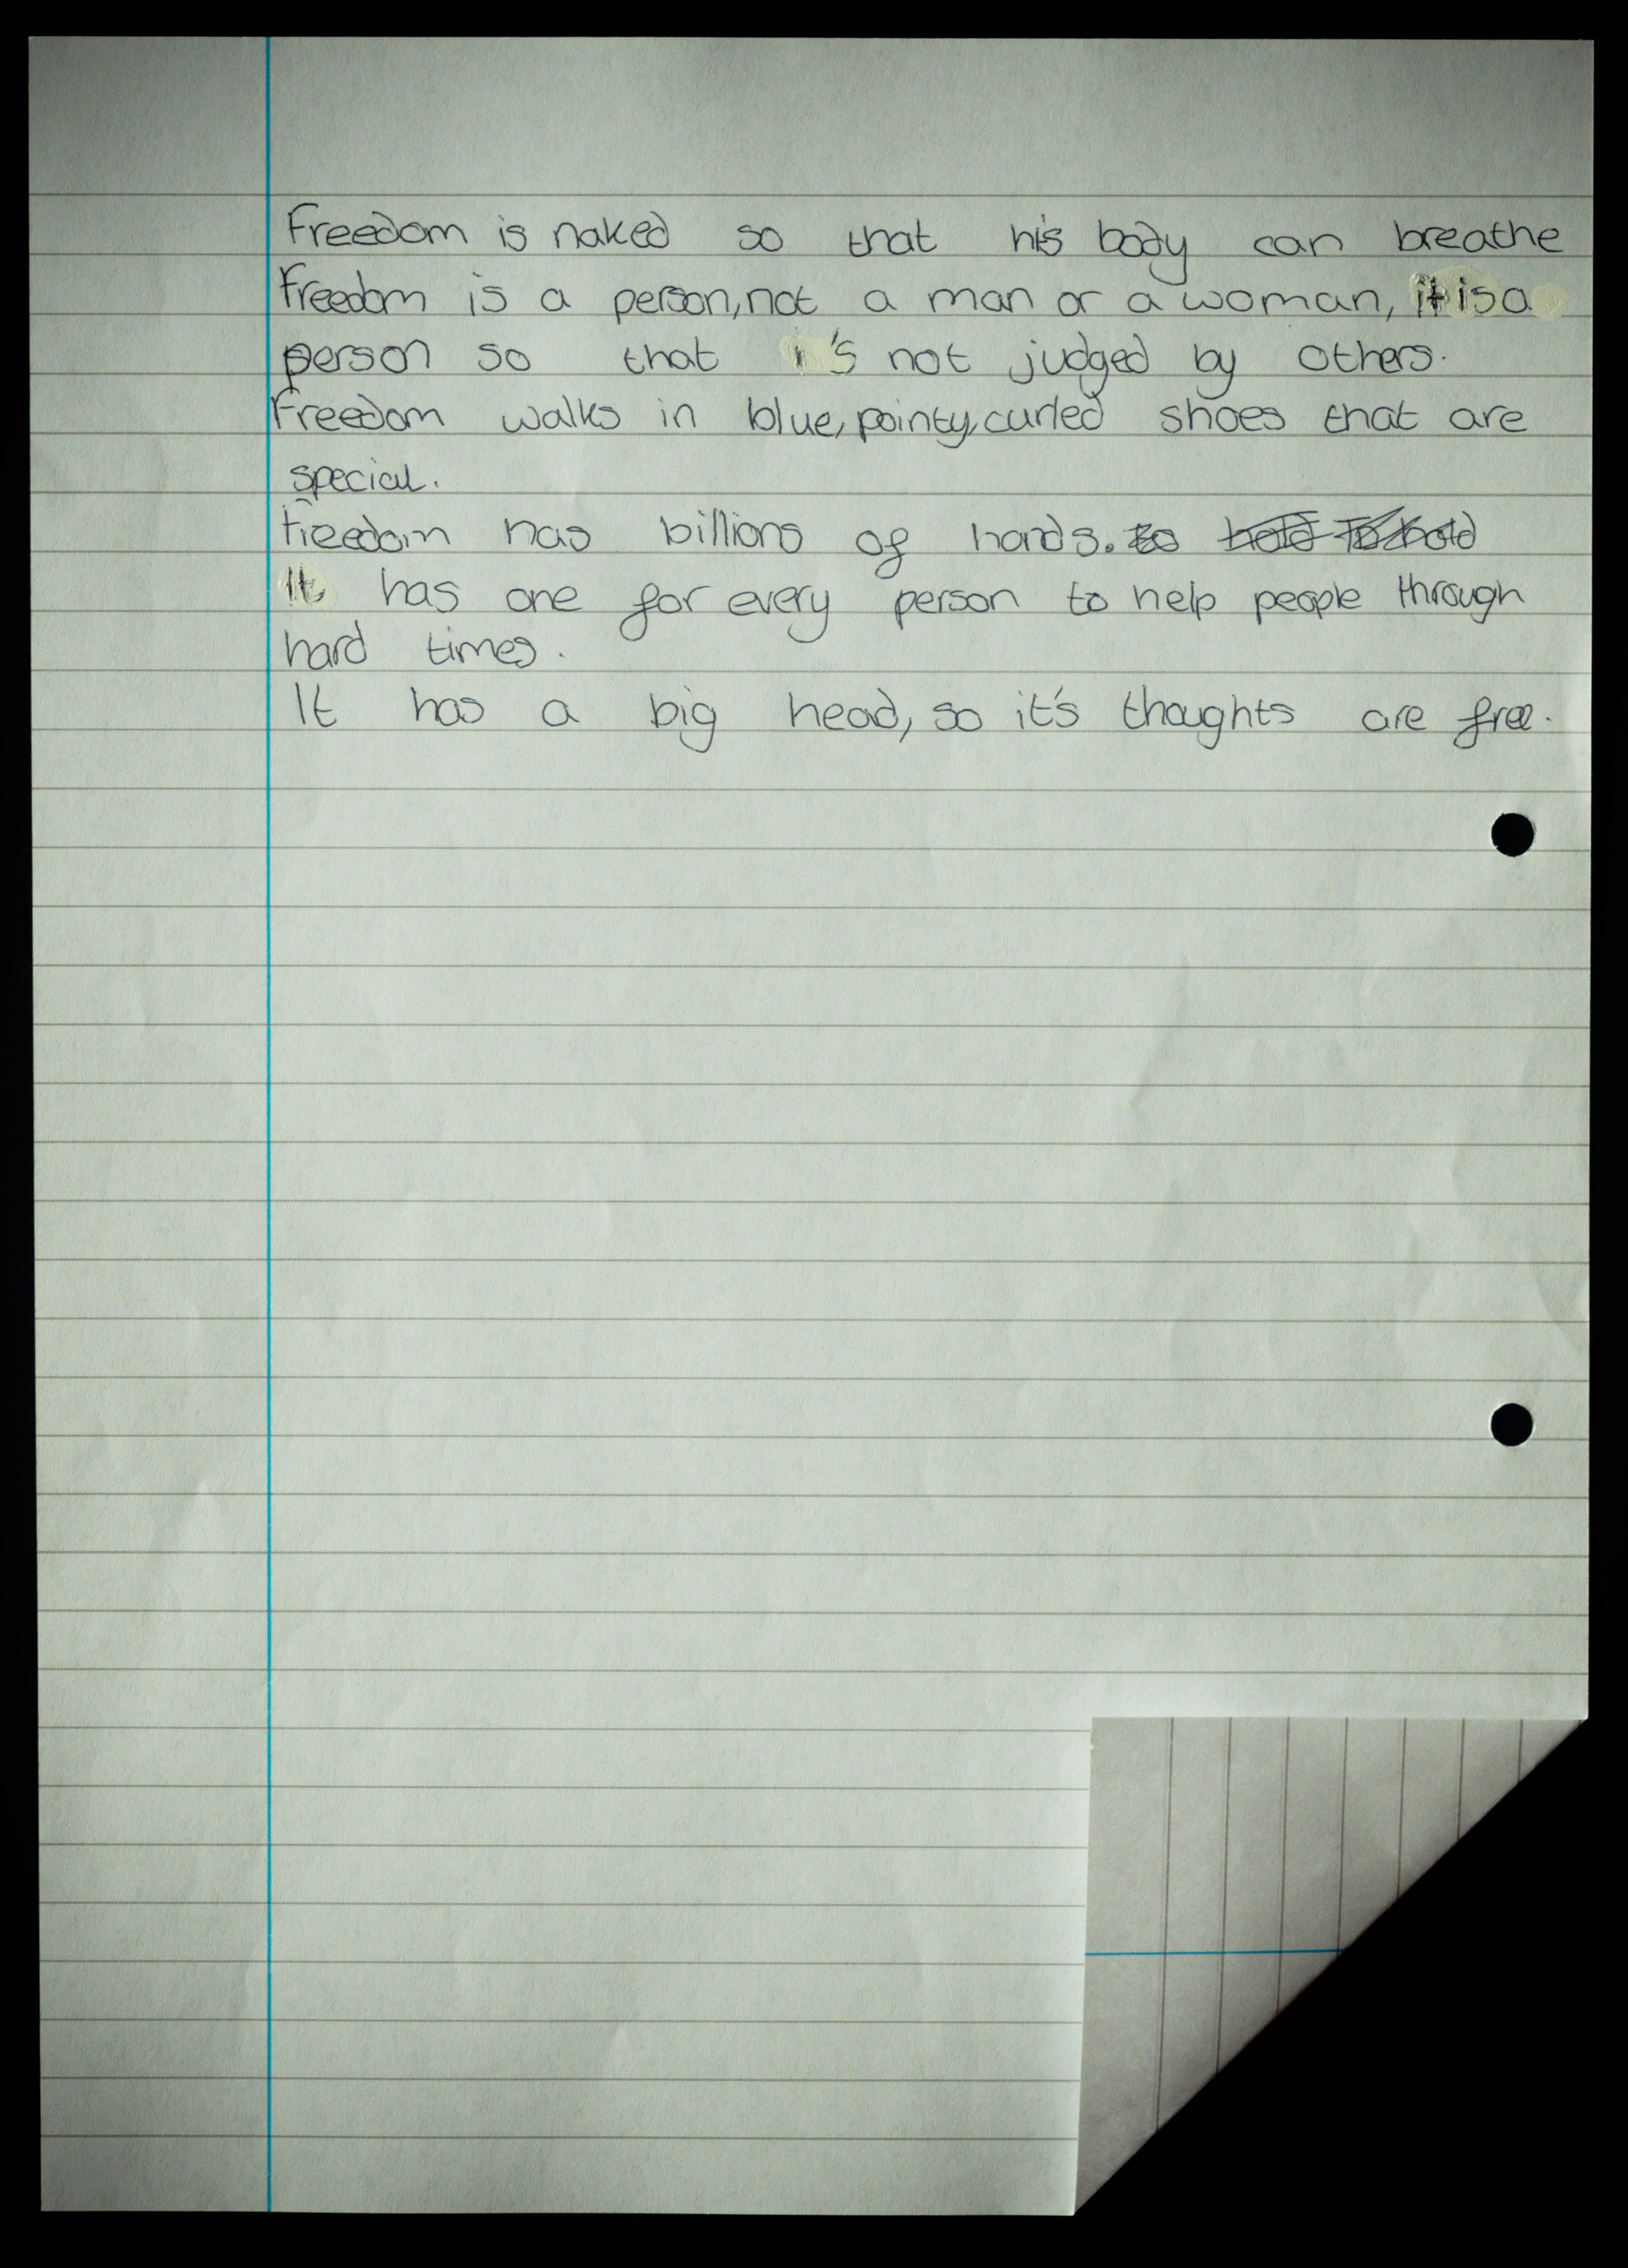 Freedom is naked so that his body can breathe
Freedom is a person, not a man or a woman, it is a
person so that i's not judged by others.
Freedom walks in blue, pointy, curled shoes that are
special.
Freedom has billions of hands. to hold To hold
It has one for every person to help people through
hard times.
It has a big head, so it's thoughts are free.